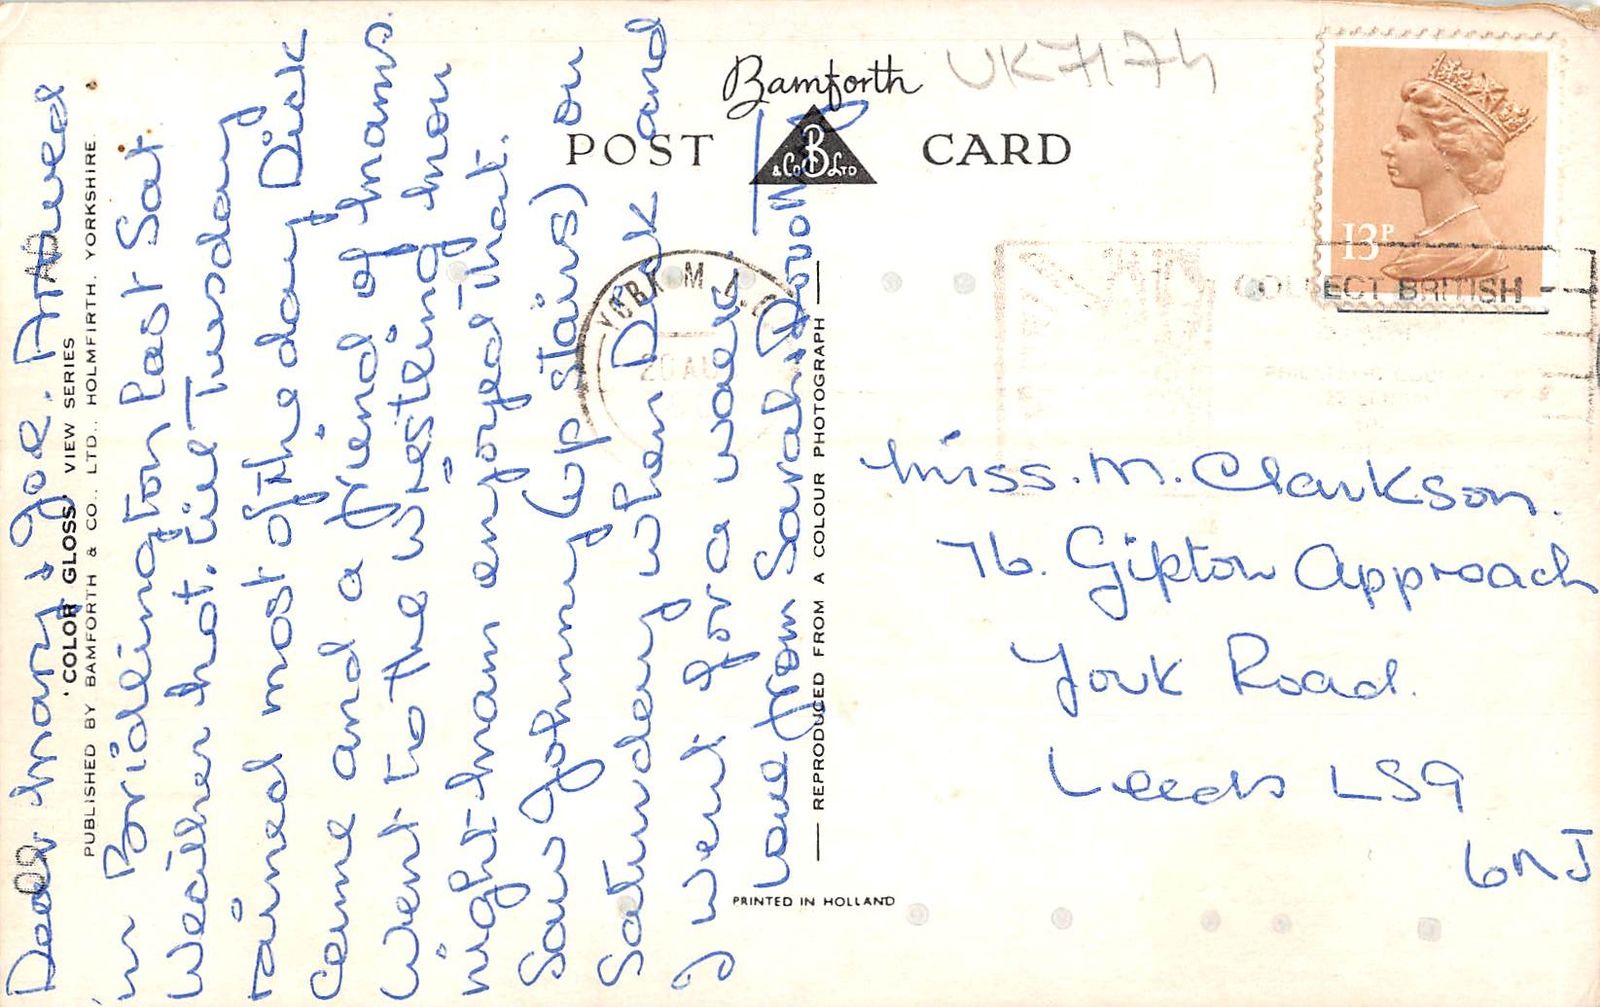 Bamforth
UK7174
POST CARD
& Co B LTD
13P
COLLECT BRITISH
20 AU
Dear Mary & Joe. Arrived
in Bridlington last Sat
Weather hot. till Tuesday
rained most of the day Dick
came and a friend of mams
went to the wrestling mon
night mam enjoyed that.
Saw Johnny (up stairs) on
Saturday when Dick and
I went for a walk.
Love from Sarah. Dorothy
'COLOR GLOSS' VIEW SERIES
PUBLISHED BY BAMFORTH & CO. LTD., HOLMFIRTH, YORKSHIRE.
REPRODUCED FROM A COLOUR PHOTOGRAPH
PRINTED IN HOLLAND
Miss. M. Clarkson.
76. Gipton Approach
York Road.
Leeds LS9
6NJ